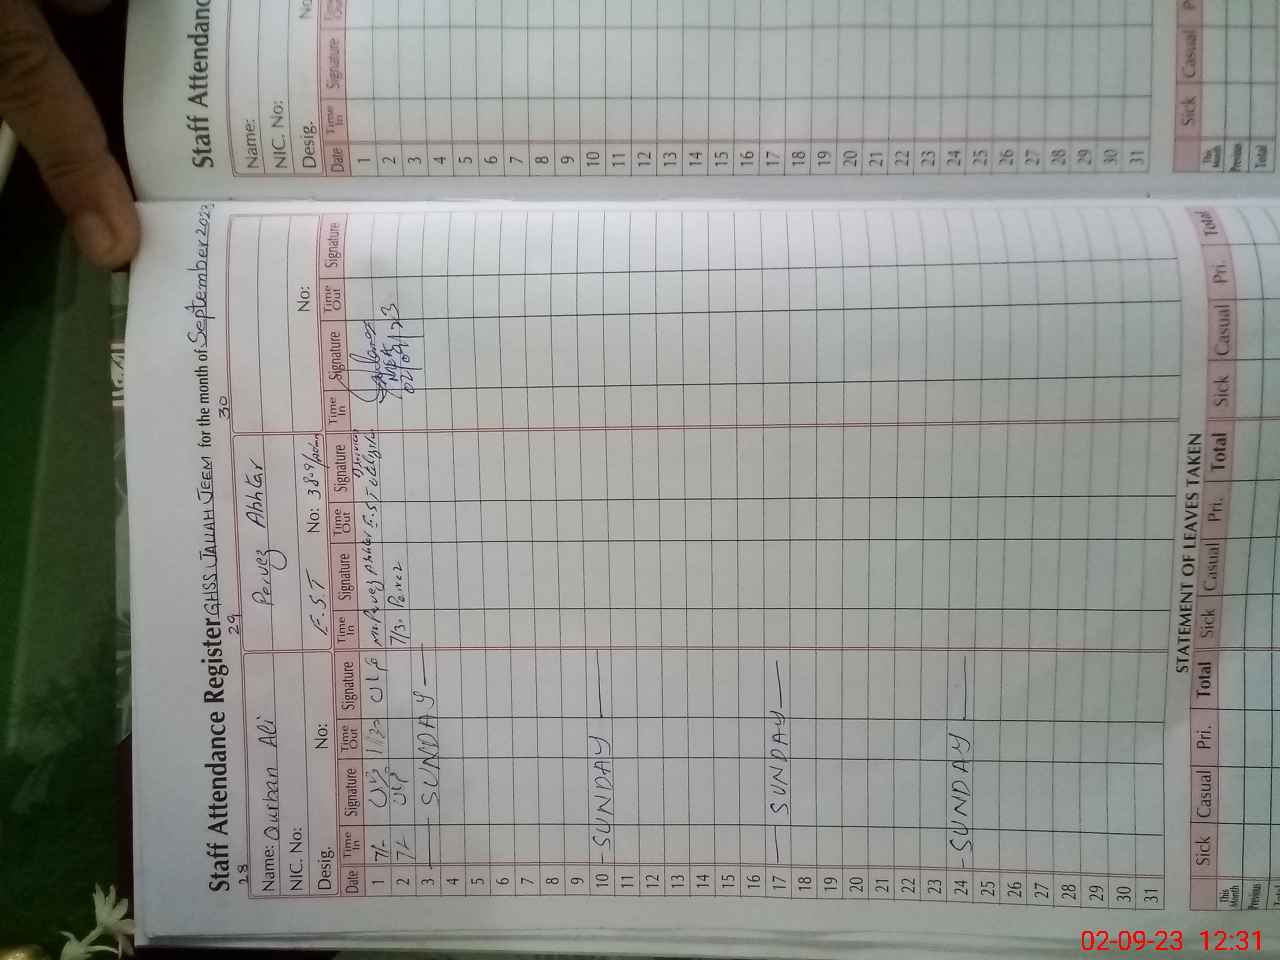 Staff Attendance Register GHSS JALLAH JEEM for the month of September 2023
28 29 30
Name: Qurban Ali Pervez Akhtar
NIC. No:
Desig. No: E.S.T No: No:
Date Time In Signature Time Out Signature Time In Signature Time Out Signature Time In Signature Time Out Signature
1 7/-
2 7/- 7/30 Pervez 02/09/23
3 — SUNDAY —
4
5
6
7
8
9
10 - SUNDAY —
11
12
13
14
15
16
17 — SUNDAY —
18
19
20
21
22
23
24 - SUNDAY —
25
26
27
28
29
30
31
STATEMENT OF LEAVES TAKEN
Sick Casual Pri. Total Sick Casual Pri. Total Sick Casual Pri. Total
This Month
Previous
Total
Staff Attendanc
Name:
NIC. No:
Desig. No
Date Time In Signature
1
2
3
4
5
6
7
8
9
10
11
12
13
14
15
16
17
18
19
20
21
22
23
24
25
26
27
28
29
30
31
Sick Casual P
This Month
Previous
Total
02-09-23 12:31